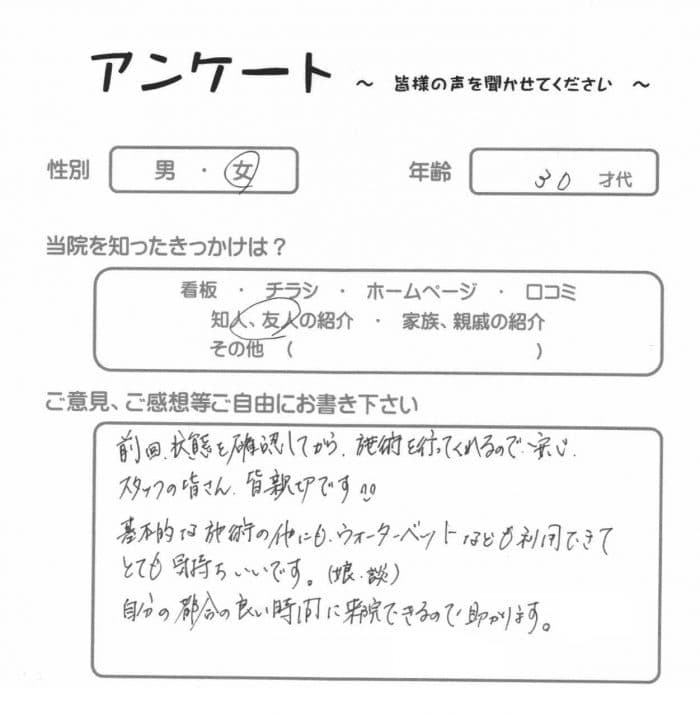 アンケート ～ 皆様の声を聞かせてください ～
性別 男 ・ 女 年齢 30 才代
当院を知ったきっかけは？
看板 ・ チラシ ・ ホームページ ・ 口コミ
知人、友人の紹介 ・ 家族、親戚の紹介
その他 （ ）
ご意見、ご感想等ご自由にお書き下さい
前回、状態を確認してから、施術を行ってくれるので、安心。
スタッフの皆さん、皆親切です
基本的な施術の他にも、ウォーターベットなども利用できて
とても気持ちいいです。（娘・談）
自分の都合の良い時間に来院できるので助かります。